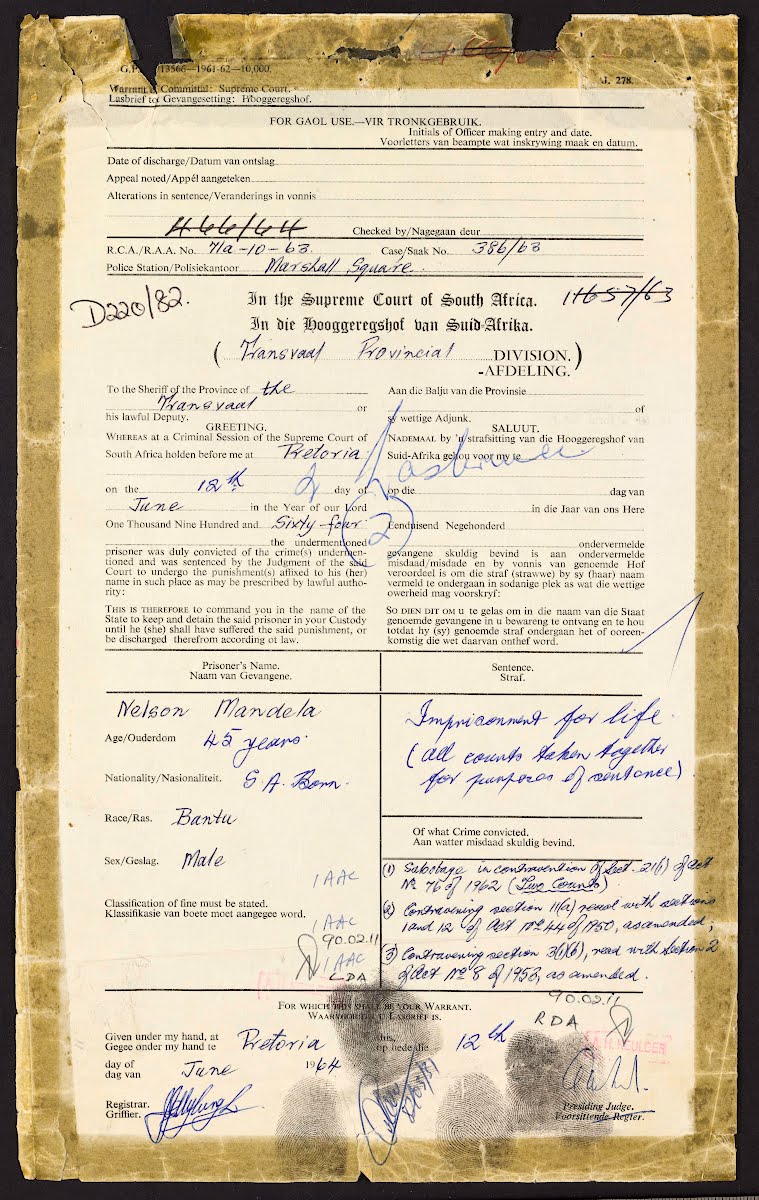 13566—1961-62—10,000.
J. 278.
Warrant of Committal: Supreme Court.
Lasbrief tot Gevangesetting: Hooggeregshof.
FOR GAOL USE.—VIR TRONKGEBRUIK.
Initials of Officer making entry and date.
Voorletters van beampte wat inskrywing maak en datum.
Date of discharge/Datum van ontslag
Appeal noted/Appèl aangeteken
Alterations in sentence/Veranderings in vonnis
466/64 Checked by/Nagegaan deur
R.C.A./R.A.A. No. 71a-10-63. Case/Saak No. 386/63
Police Station/Polisiekantoor Marshall Square.
D220/82.
In the Supreme Court of South Africa. 11657/63
In die Hooggeregshof van Suid-Afrika.
(Transvaal Provincial DIVISION.)
-AFDELING.
To the Sheriff of the Province of the
Transvaal or
his lawful Deputy.
GREETING.
WHEREAS at a Criminal Session of the Supreme Court of
South Africa holden before me at Pretoria
on the 12th day of
June in the Year of our Lord
One Thousand Nine Hundred and Sixty-four
the undermentioned
prisoner was duly convicted of the crime(s) undermen-
tioned and was sentenced by the Judgment of the said
Court to undergo the punishment(s) affixed to his (her)
name in such place as may be prescribed by lawful autho-
rity:
THIS IS THEREFORE to command you in the name of the
State to keep and detain the said prisoner in your Custody
until he (she) shall have suffered the said punishment, or
be discharged therefrom according to law.
Aan die Balju van die Provinsie
of
sy wettige Adjunk.
SALUUT.
NADEMAAL by 'n strafsitting van die Hooggeregshof van
Suid-Afrika gehou voor my te
op die dag van
in die Jaar van ons Here
Eenduisend Negehonderd
2
ondervermelde
gevangene skuldig bevind is aan ondervermelde
misdaad/misdade en by vonnis van genoemde Hof
veroordeel is om die straf (strawwe) by sy (haar) naam
vermeld te ondergaan in sodanige plek as wat die wettige
owerheid mag voorskryf:
SO DIEN DIT OM u te gelas om in die naam van die Staat
genoemde gevangene in u bewaring te ontvang en te hou
totdat hy (sy) genoemde straf ondergaan het of ooreen-
komstig die wet daarvan onthef word.
Prisoner's Name.
Naam van Gevangene.
Nelson Mandela
Age/Ouderdom 45 years.
Nationality/Nasionaliteit. S.A. Born.
Race/Ras. Bantu
Sex/Geslag. Male
1 AAC
Classification of fine must be stated.
Klassifikasie van boete moet aangegee word.
1 AAC
90.02.11
1 AAC
LDA
Sentence.
Straf.
Imprisonment for life.
(all counts taken together
for purposes of sentence)
Of what Crime convicted.
Aan watter misdaad skuldig bevind.
(1) Sabotage in contravention of Sect. 21(1) of Act
No 76 of 1962 (Two Counts)
(2) Contravening section 11(a) read with sections
1 and 12 of Act No 44 of 1950, as amended;
(3) Contravening section 3(1)(b), read with Section 2
of Act No 8 of 1953, as amended.
FOR WHICH THIS SHALL BE YOUR WARRANT.
WAARVOOR DIT U LASBRIEF IS.
90.02.11
RDA
Given under my hand, at
Gegee onder my hand te Pretoria this,
op hede die 12th
day of
dag van June 1964
Registrar.
Griffier.
Presiding Judge.
Voorsittende Regter.